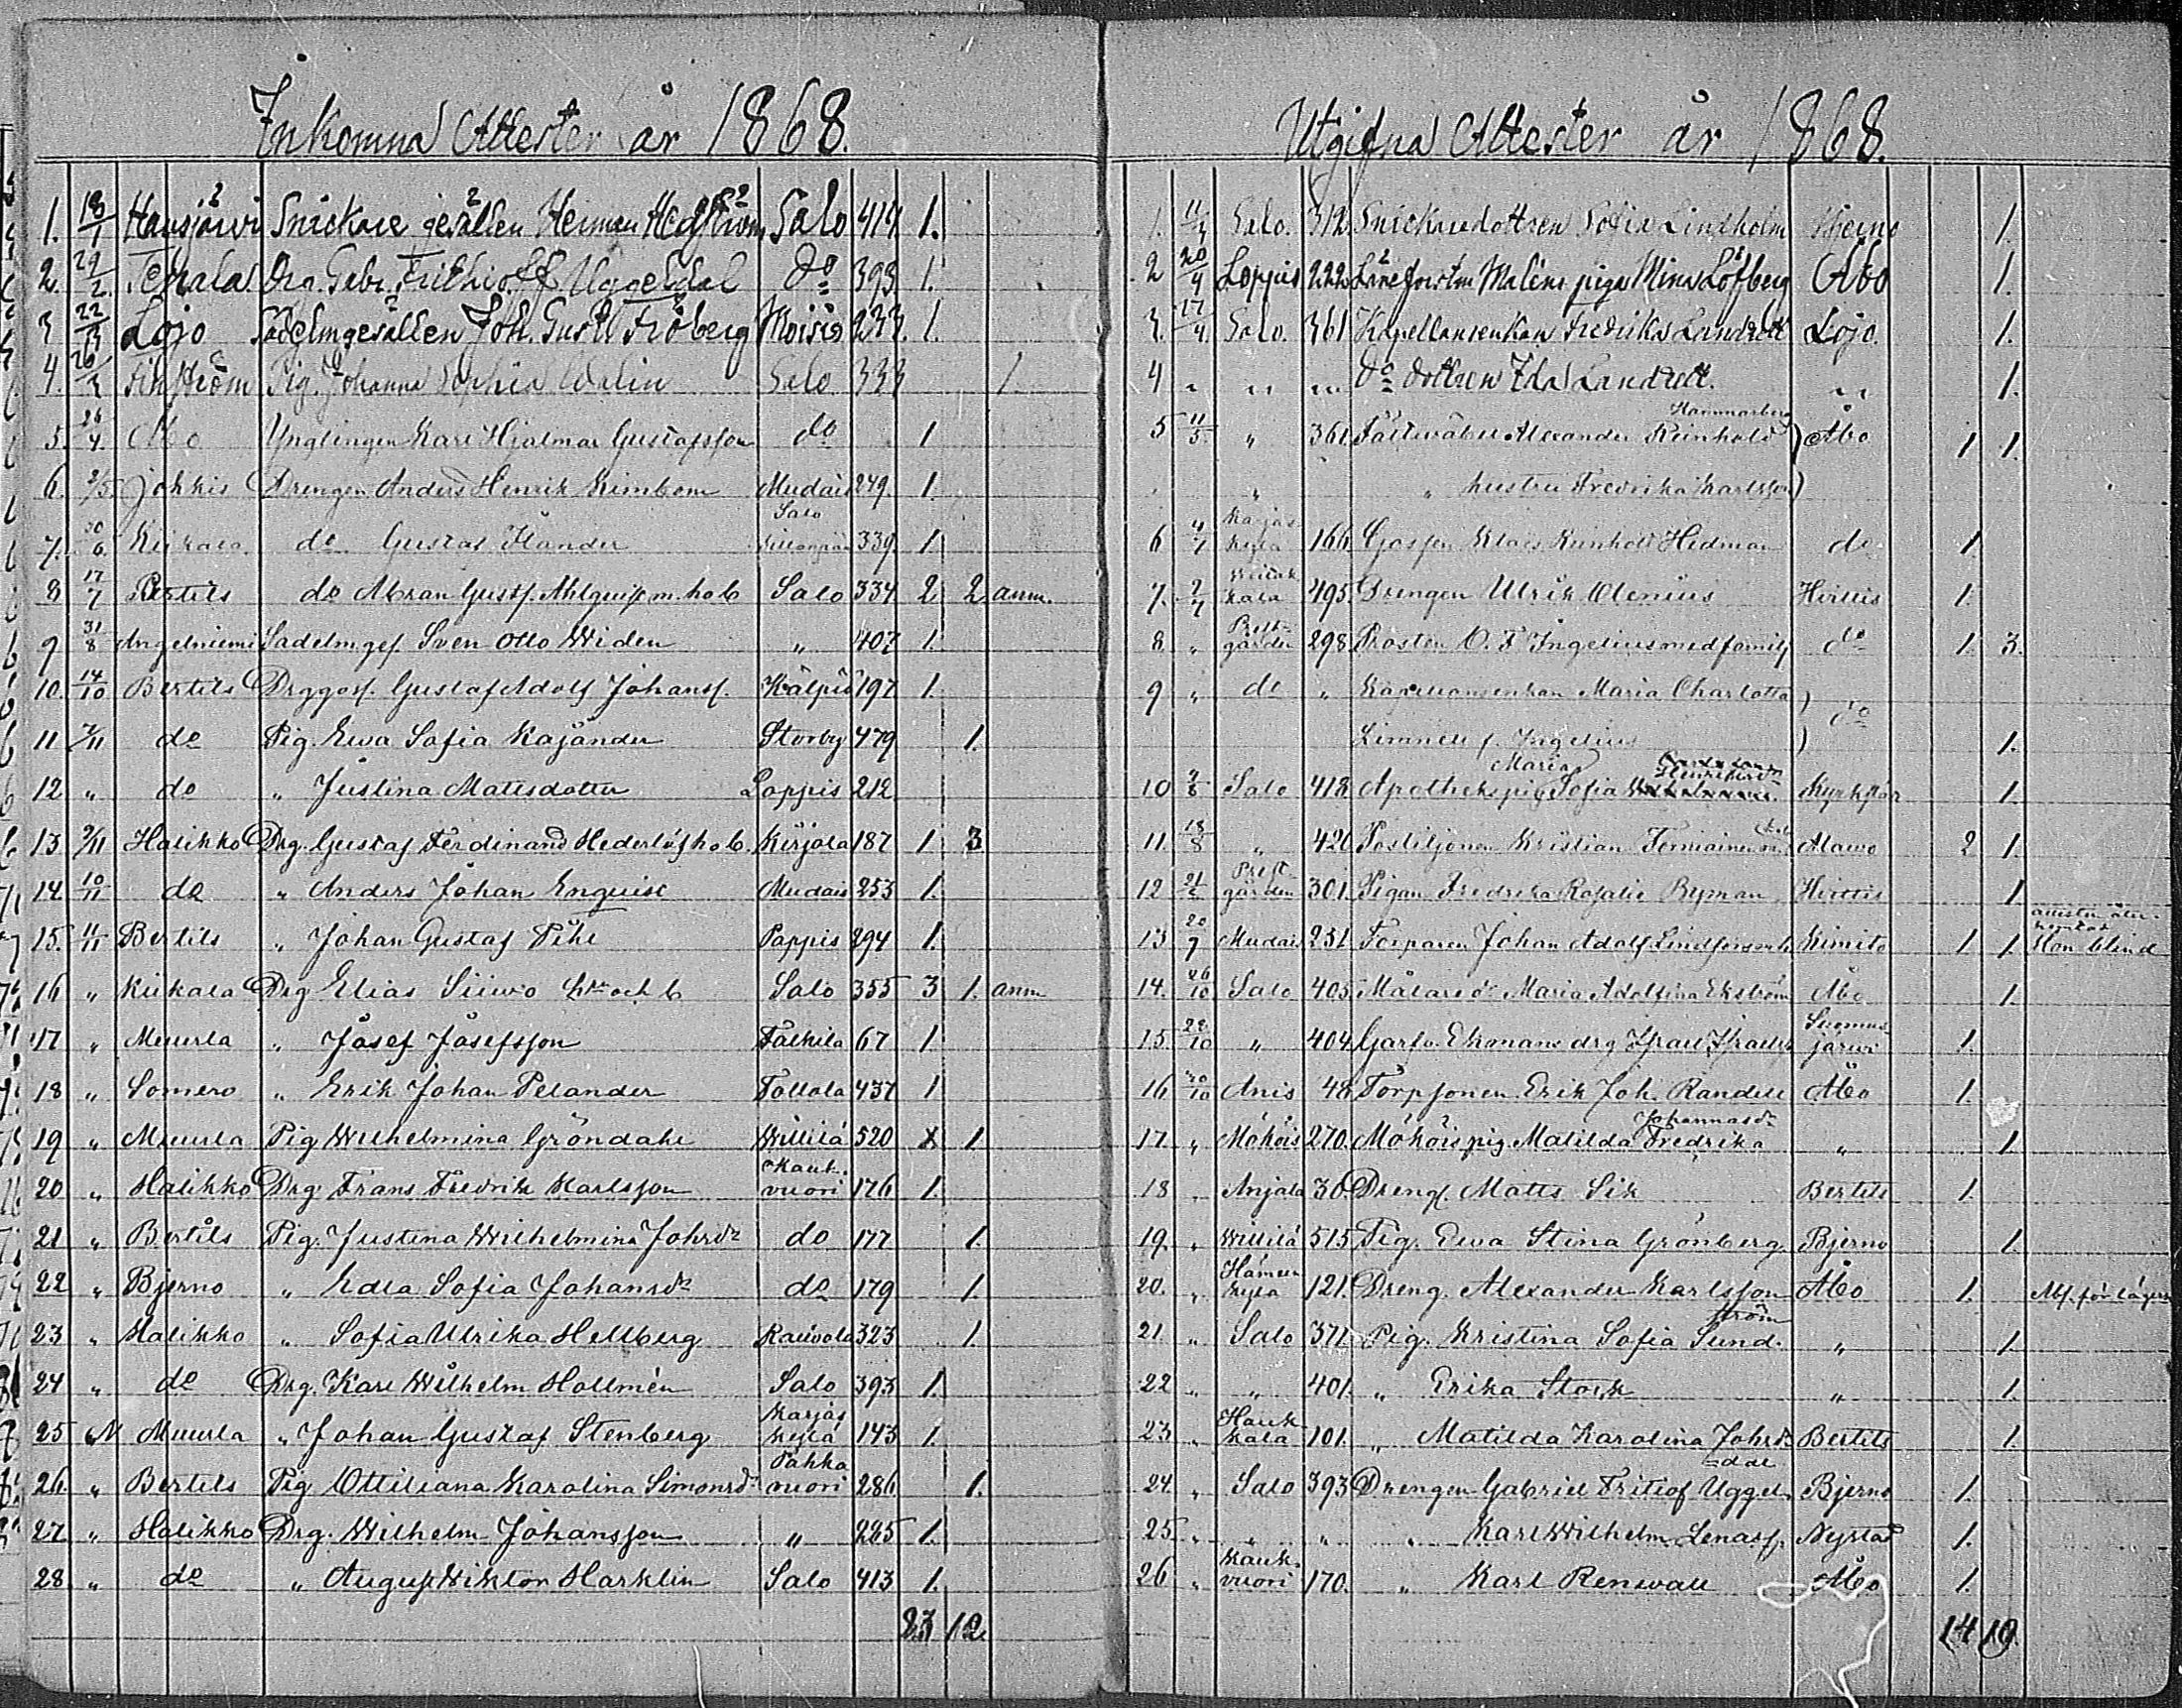 Inkomna Attester år 1868.
1. 18/1 Hausjärvi Snickare gesällen Herman Hedström Salo 414 1.
2. 29/2 Tenala Drg. Gabr. Frithioff Uggeldal do 393 1.
3 22/3 Lojo Sadelmgesällen Joh. Gust. Fröberg Moisio 233. 1.
4. Finström Pig. Johanna Sophia Walin Salo 333 1
5. 26/4 Åbo Ynglingen Karl Hjalmar Gustafsson do 1
6. 2/5 Jokkis Drengen Anders Henrik Kimbom Mudais 249. 1.
Salo
7. 30/6 Kiikala do Gustaf Ilander 339 1
8 17/7 Bertils do Abran Gustf. Ahlquist m. ho b Salo 334 2 2 anm.
9 31/8 Angelniemi Sadelmges Sven Otto Widen " 407 1.
10. 14/10 Bertils Drggoss. Gustaf Adolf Johanss. Kälpiö 197 1.
11 7/11 do Pig. Ewa Sofia Kajander Storby 479 1.
12 " do " Justina Mattsdotter Loppis 212
13 9/11 Halikko Drg. Gustaf Ferdinand Hederlöf ho b. Kirjola 187 1 3
14. 10/11 do " Anders Johan Enquist Mudais 253 1.
15. 11/11 Bertils " Johan Gustaf Pihl Pappis 294 1.
16 " Kiikala Drg Elias Siiwo hu och b Salo 355 3 1. anm
17 " Muurla " Josef Josefsson 67 1.
18 " Somero " Erik Johan Pelander Tollola 437 1
19 " Muurla Pig Wilhelmina Gröndahl Willilä 520 X 1
Kauk.
20 " Halikko Drg. Frans Fredrik Karlsson vuori 176 1.
21 " Bertils Pig. Justina Wilhelmina Johsdr do 177 1.
22 " Bjerno " Edla Sofia Johansdr do 179 1.
23 " Halikko " Sofia Ulrika Hellberg Rauvola 323 1.
24 " do Drg. Karl Wilhelm Hollmén Salo 393 1.
Karjas
25 " Muurla " Johan Gustaf Stenberg kylä 143 1.
Pahka
26 " Bertils Pig Ottiliana Karolina Simonsdr vuori 286 1.
27 " Halikko Drg. Wilhelm Johansson " 285 1.
28 " do " August Wiktor Harklin Salo 413 1.
23 12
Utgifna Attester år 1868.
1. Salo. 312. Snickaredottren Sofia Lindholm Bjerno 1.
2 20/4 Loppis 222. Länsforstm Maléns piga Mina Löfberg Åbo 1.
3. 17/4 Salo. 361 Kapellansenkan Fredrika Landtell Lojo. 1.
4 " " " do dottren Ida Landtell. " 1.
Hammarberg
5 11/5 " 361. Fältwäbel Alexander Reinhold ) Åbo 1 1.
" " hustru Fredrika Karlsson )
Karjas
6 kylä 166. Gossen Klas Reinhold Hedman do 1
7. kala 495. Drengen Ulrik Olenius Hittis 1.
Prest-
8 " gården 298 Prosten O. F. Ingelius med familj do 1. 3.
9 " do " Kapellansenkan Maria Charlotta )
Limnell f. Ingelius ) do 1.
Maria
10 Salo 418 Apothekspig Sofia Kyrkslätt 1.
11. 18/8 " 420 Postiljonen Kristian 2 1.
Prest-
12 gården 301. Pigan Fredrika Rosalie Byman Hittis 1
13 20/7 Mudais 231. Torparen Johan Adolf Lindfors Kimito 1. 1. Hon blind
14. 26/10 Salo 405. Målaredr Maria Adolfina Ekström Åbo 1.
Suomus
15 22/10 " 404. Garfv. Ekmans drg järwi 1.
16 30/10 Anis 48. Torpsonen Erik Joh. Randell Åbo 1.
Johannasdr
17 " Möhöis 270. Möhöispig. Matilda Fredrika " 1
18 " Anjala 30. Drengs. Matts Sik Bertils 1.
19. " Willilä 515 Pig. Ewa Stina Grönberg. Bjerno 1.
Hämeen
20. " kylä 121. Dreng. Alexander Karlsson Åbo 1.
ström
21. " Salo 371 Pig. Kristina Sofia Sund. " 1
22 " " 401. " Erika Stork " 1.
Hauk
23 " kala 101. " Matilda Karolina Johsdr Bertils 1.
=dal
24. " Salo 393 Drengen Gabriel Fritiof Uggel. Bjerno 1.
25. " " " " Karl Wilhelm Lenass. Nystad 1.
Kauk.
26 " vuori 170. " Karl Renwall Åbo 1.
14 19.